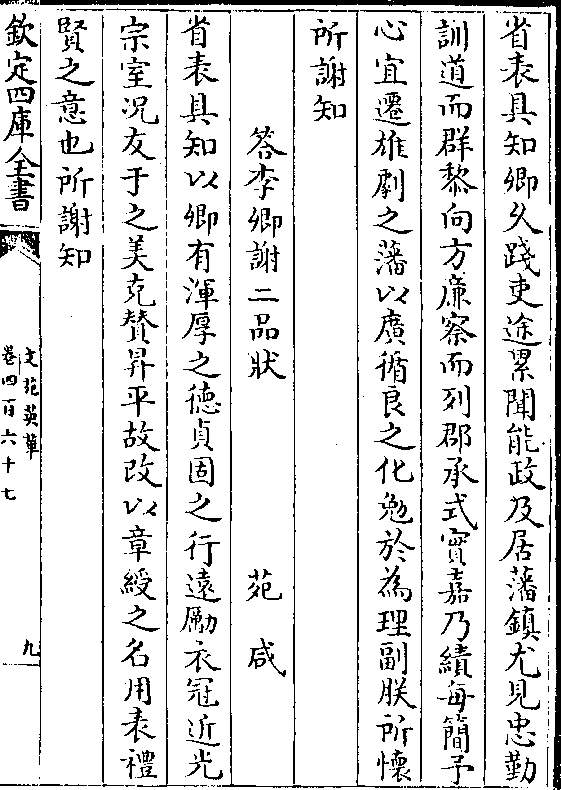 省表具知卿久踐吏途累聞能政及居藩鎮尤見忠勤
訓道而群黎向方廉察而列郡承式實嘉乃績每簡予
心宜遷雄劇之藩以廣循良之化勉於為理副朕所懷
所謝知
答李卿謝二品狀　苑咸
省表具知以卿有渾厚之德貞固之行遠勵衣冠近光
宗室況友于之美克賛昇平故改以章綬之名用表禮
賢之意也所謝知
欽定四庫全書
文苑英華
卷四百六十七
九